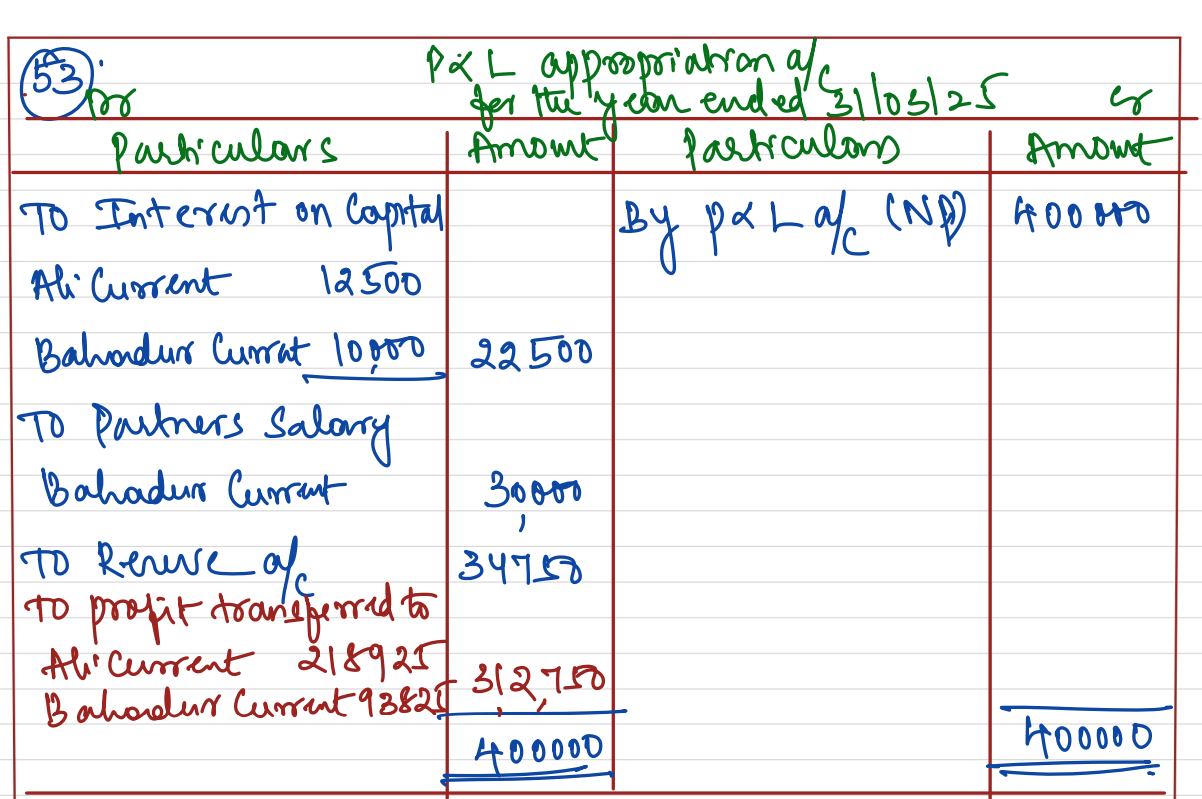 53 P & L appropriation a/c
Dr for the year ended 31/03/25 Cr
Particulars Amount Particulars Amount
To Interest on Capital By P & L a/c (NP) 400000
Ali Current 12500
Bahadur Current 10,000 22500
To Partners Salary
Bahadur Current 30,000
To Reserve a/c 34750
To profit transferred to
Ali Current 218925
Bahadur Current 93825 312,750
400000 400000